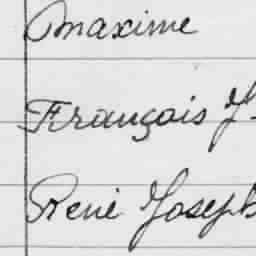 Maxime
François J
René Joseph